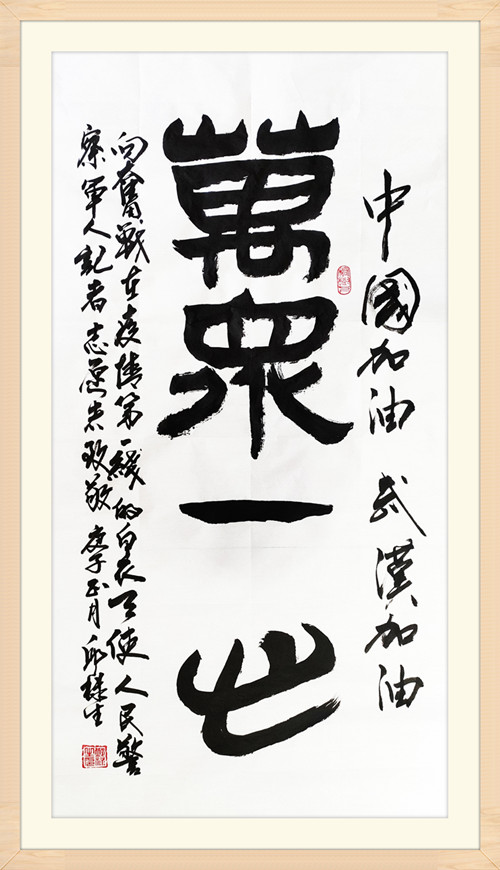 中國加油 武漢加油
萬眾一心
向奮戰在疫情第一綫的白衣天使人民警
察軍人記者志愿者致敬 庚子正月 邱生